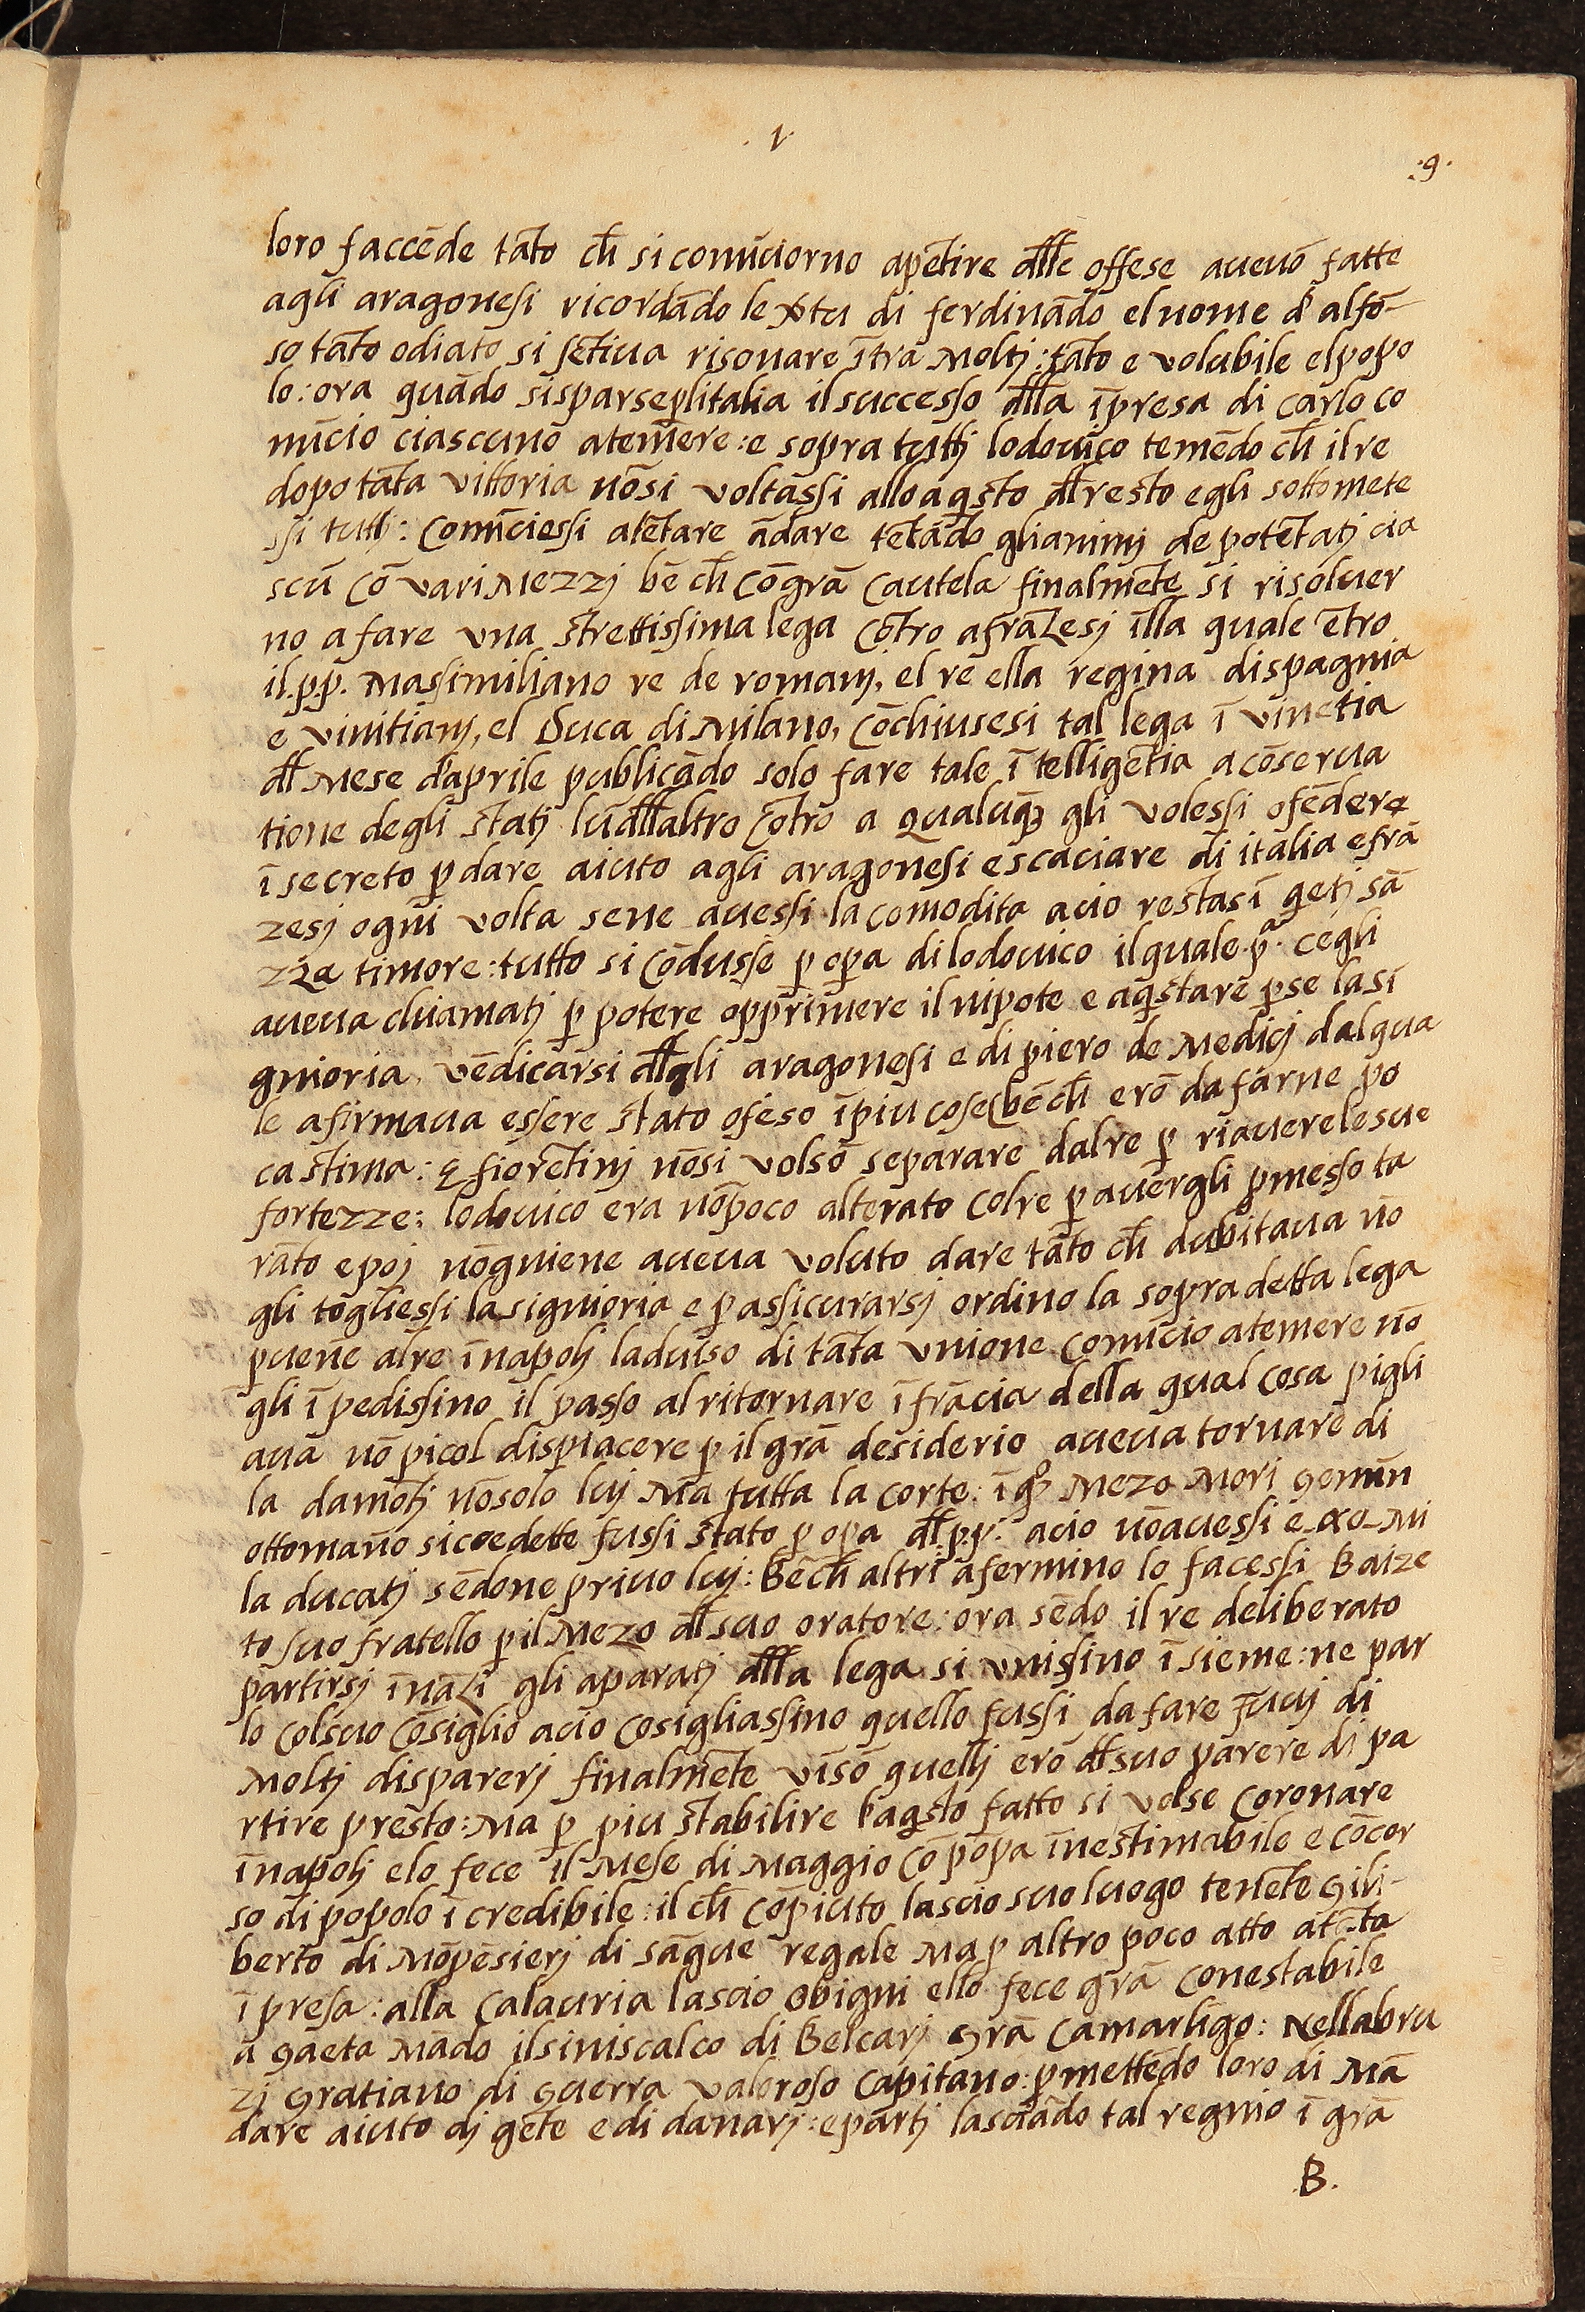 .1.
.9.
loro faccēde tāto ch̄ si comīciorno apētire dll̄e offese aueuō fatte
agli aragonesi ricordādo le v̄tu di ferdināndo el nome d' alfō-
so tāto odiato si sētiua risonare ītra Moltj : tāto e volubile elpopo
lo : ora quādo sisparse p̱ litalia il successo dll̄a īpresa di carlo co
mīcio ciascuno atemere : e sopra tuttj lodouico temēdo ch̄ ilre
dopo tāta vittoria nō si voltassi allo aq̄sto dl̄ resto egli sottomete
ssi tuttj : Comīciossi atētare ādare tētādo glianimj de potētatj cia
scū cō vari Mezzj bē ch̄ cō grā cautela finalmēte si risoluer
no a fare una strettissima lega cōtro afrāzesj īlla quale ētro
il .p.p. Massimiliano re de romanj, el re ella regina dispagnia
e vinitianj, el Duca di Milano, cōchiusesi tal lega ī vinetia
dl̄ Mese d'aprile publicādo solo fare tale ītelligētia a cōserua
tione degli statj lū dll̄altro cōtro a qualūq3 gli volessi ofēdere
ī secreto p̱ dare aiuto agli aragonesi e scaciare di italia efrā
zesj ogni volta sene auessi la comodita acio restasī q̄etj sā
zza timore : tutto si cōdusse p̱ op̱a di lodouico il quale .p̄ª. cegli
aueua chiamatj p̱ potere opprimere il nipote e aq̄stare p̱ se la si
gnioria, vēdicarsi dl̄ gli aragonesi e di piero de Medicj dal qua
le afirmaua essere stato ofeso ī piu cose (bēch̄ erō da farne po
ca stima : E fiorētinj nō si volsō separare dal re p̱ riauere le sue
fortezze : lodouico era nō poco alterato colre p̱ auergli p̱messo ta
rāto e poj nō gniene aueua voluto dare tāto ch̄ dubitaua nō
gli togliessi la signioria e p̱ assicurarsj ordino la sopra detta lega
p̱uēne alre ī napolj laduiso di tāta vnione comīcio atemere nō
gli īpedissino il passo al ritornare ī frācia della qual cosa pigli
aua nō picol dispiacere p̱ il grā desiderio aueua tornare di
la damōtj nōsolo luj Ma tutta la corte : ī q̄º Mezo Mori gemin
ottomano sicredette fussi stato p̱ op̱a dl̄ .p.p. acio nō auessi e .xo. Mi
la ducatj sēdone priuo luj : Bēch̄ altri afermino lo facessi Baize
to suo fratello p̱ il Mezo dl̄ suo oratore : ora sēdo il re deliberato
partirsj īnāzi gli aparatj dll̄a lega si vnissino īsieme : ne par
lo colsuo cōsiglio acio cosigliassino quello fussi da fare fuuj di
Moltj dispererj finalmēte vīsō quellj erō dl̄ suo parere di pa
rtire presto : Ma p̱ piu stabilire laq̄sto fatto si volse coronare
ī napolj elo fece il Mese di Maggio cō pōpa īnestimabile e cōcor
so di popolo īcredibile : il ch̄ cōpiuto lascio suo luogo tenēte gili-
berto di Mōpēsierj di sāgue regale Ma p̱ altro poco atto at āta
īpresa : alla calauria lascio obigni ello fece grā conestabile
a gaeta Mādo ilsiniscalco di Belcarj grā camarlīgo : Nellabru
zj gratiano di guerra valoroso capitano : p̱mettēdo loro di Mā
dare aiuto dj gēte e di danarj : epartj lasciādo tal regnio ī grā
.B.